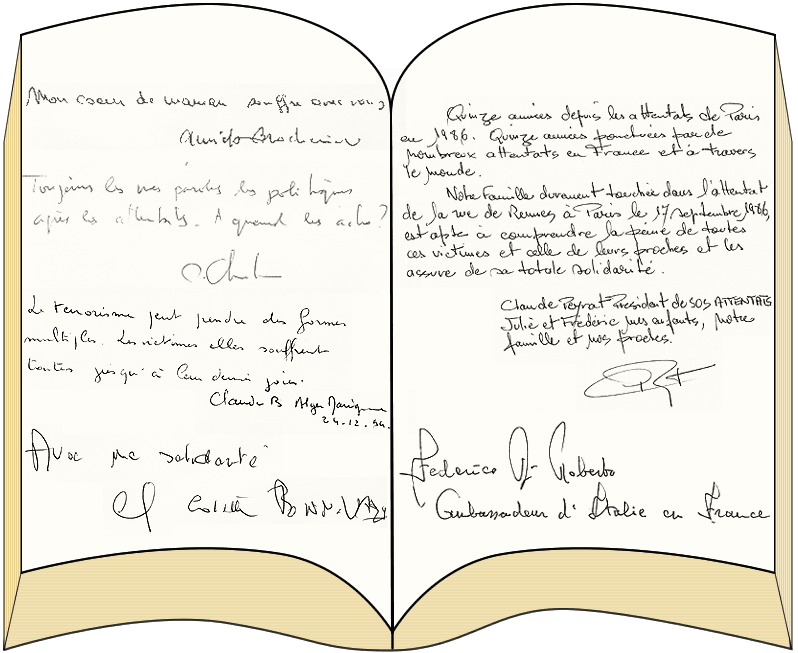 Mon coeur de maman souffre avec vous
Toujours les mes paroles les politiques
après les attentats. A quand les actes?
Le terrorisme peut prendre des formes
multiples. Les victimes elles souffrent
toutes jusqu'à leur dernier jour.
Claude B Alger Marignane
24.12.94.
Avec ma solidarité
Colette
Quinze années depuis les attentats de Paris
en 1986. Quinze années ponctuées par de
nombreux attentats en France et à travers
le monde.
Notre famille durement touchée dans l'attentat
de la rue de Rennes à Paris le 17 septembre 1986,
est apte à comprendre la peine de toutes
ces victimes et celle de leurs proches et les
assure de sa totale solidarité.
Claude Peyrat Président de SOS ATTENTATS
Julie et Frédéric mes enfants, notre
famille et nos proches.
Federico Di Roberto
Ambassadeur d'Italie en France